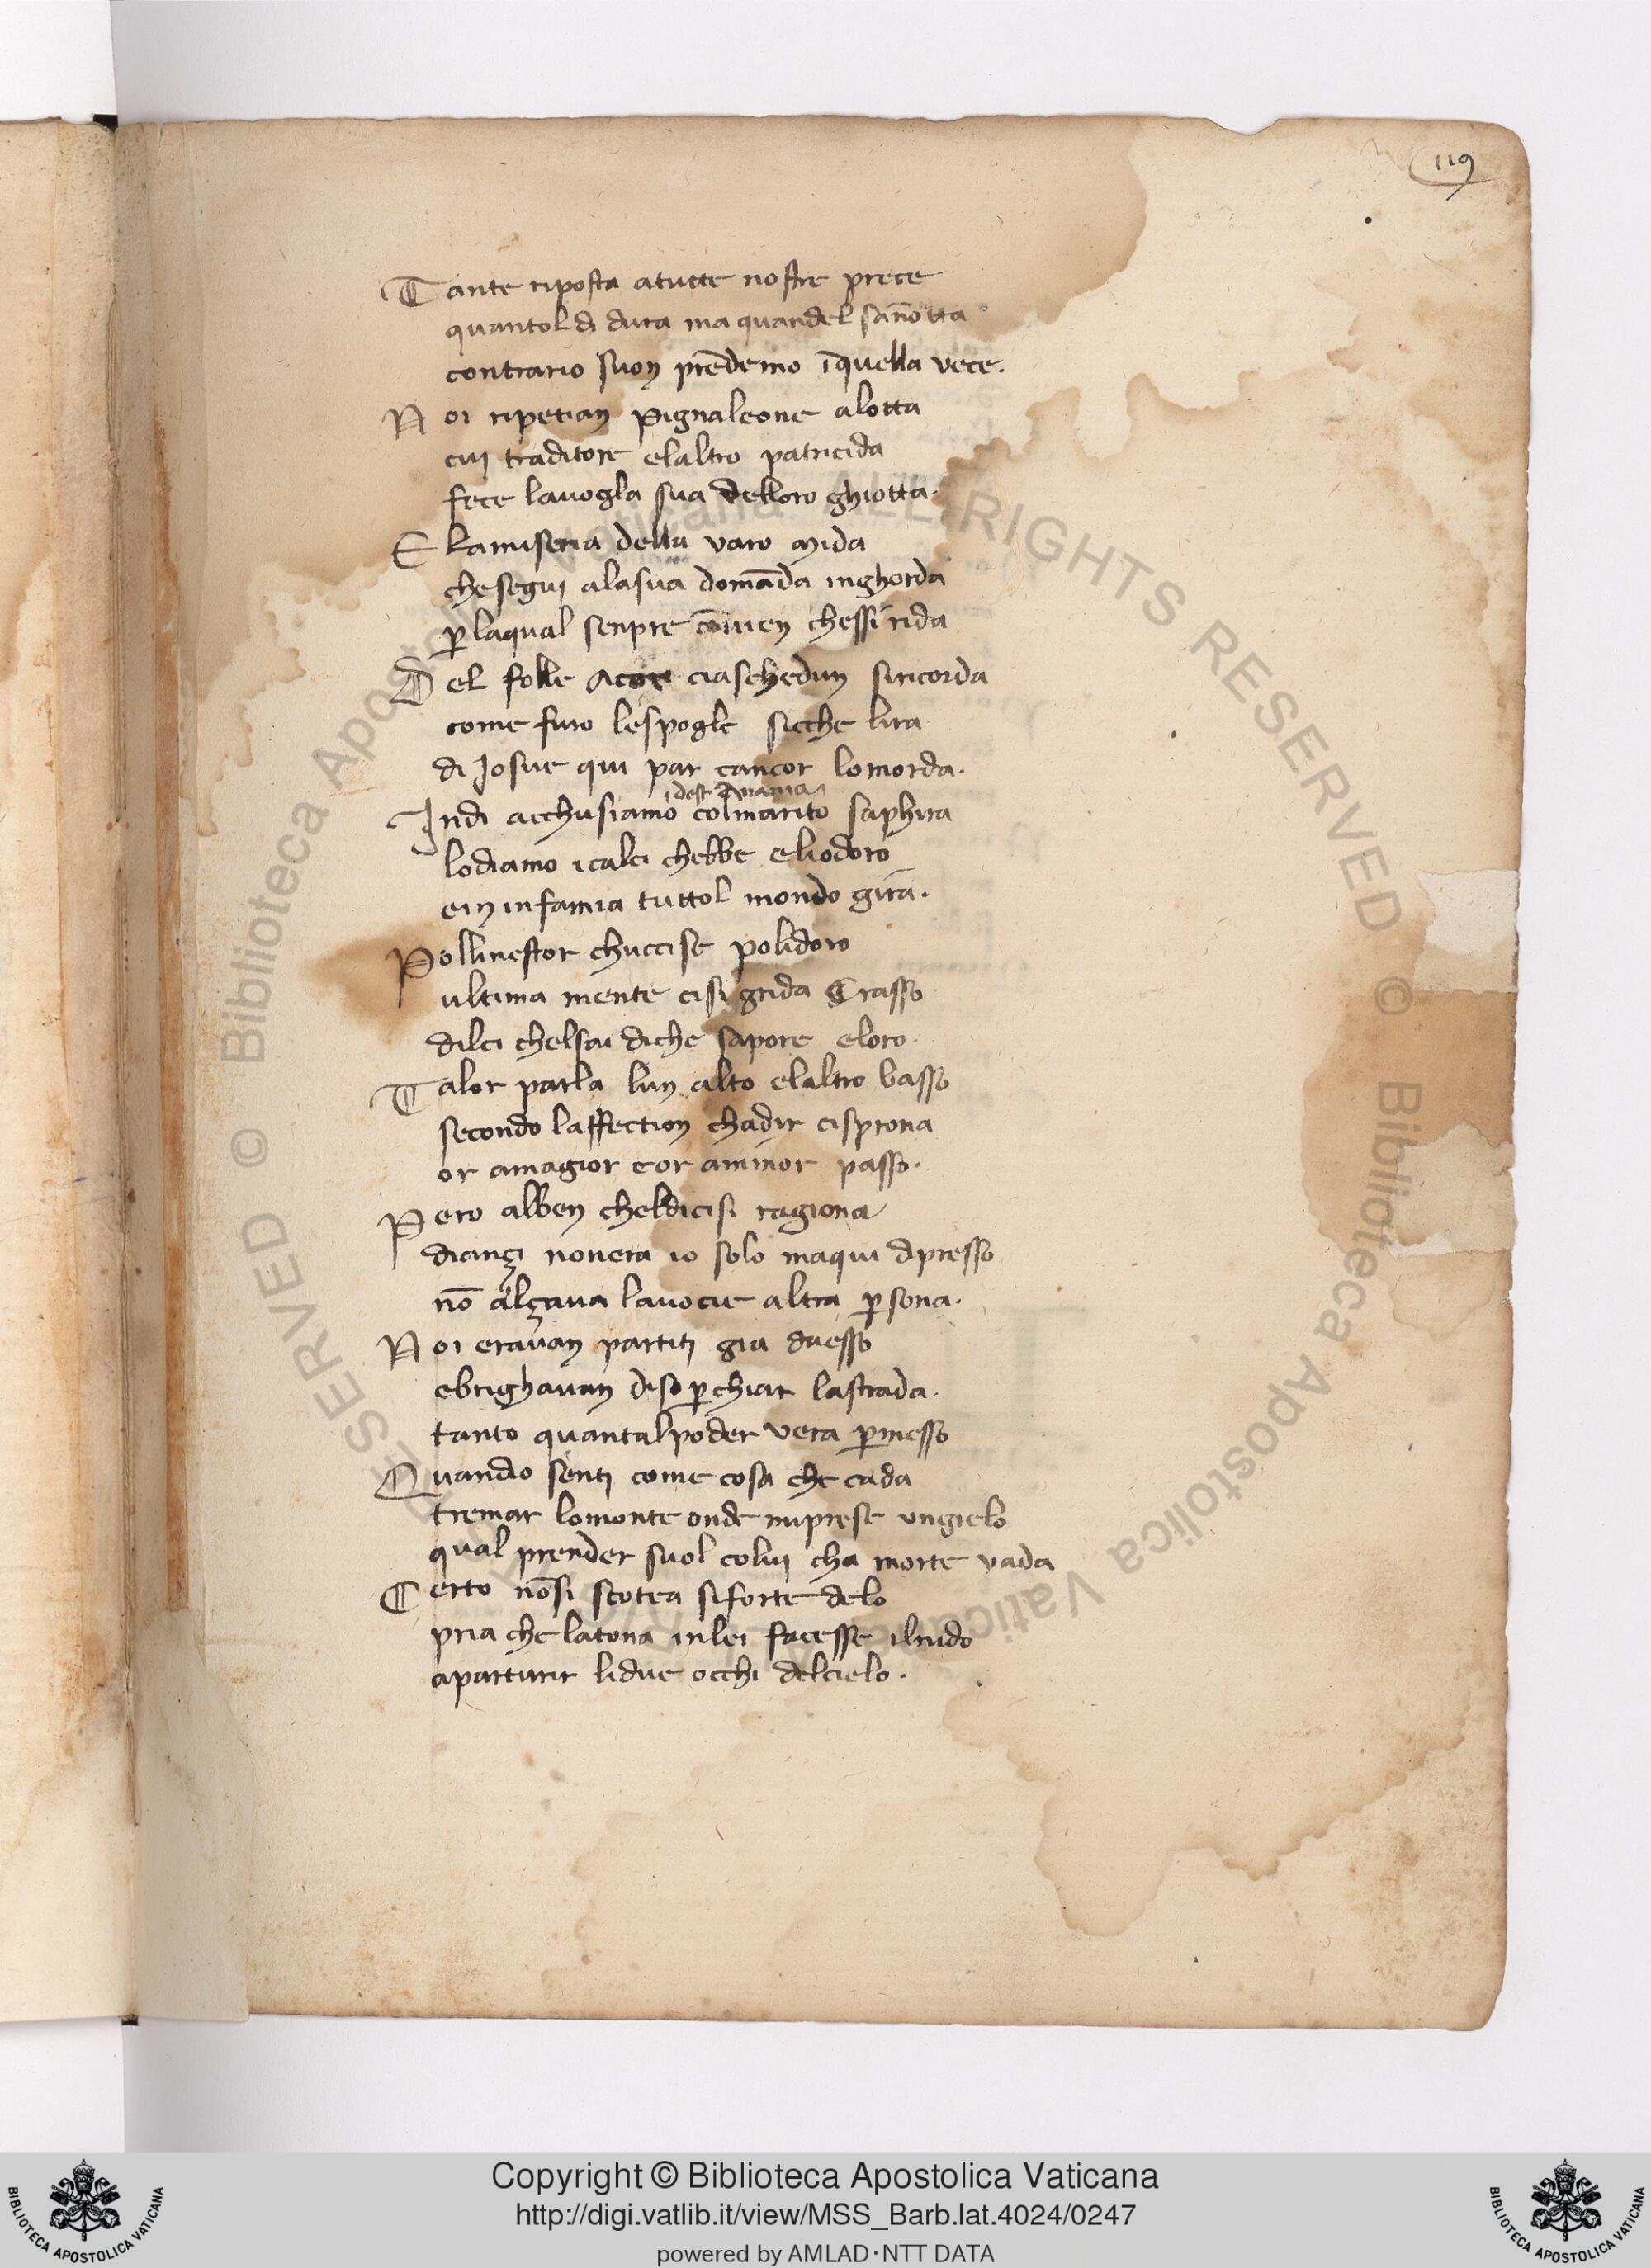 119
Tante riposta atutte nostre prece
quantol di dura ma quandel sãnotta
contrario suon prẽdemo ĩquella vece.
Noi ripetian pignaleone alotta
cui traditore elaltro patricida
fece lauogla sua delloro ghiotta.
Elamiseria della varo mida
chesegui alasua domãda inghorda
p̱ laqual senpre cõuien chessi rida
Del folle Acor ciaschedun siricorda
come furo lespogle sicche lira
di Josue qui par cancor lomorda.
idest Anania
Indi acchusiamo colmarito saphira
lodiamo icalci chebbe eliodoro
ein infamia tuttol mondo gira.
Pollinestor chuccise polidoro
ultima mente cisi grida Crasso
dilci chelsai diche sapore eloro.
Talor parla lun alto elaltro basso
secondo laffection chadir cisprona
or amagior eor aminor passo.
Pero alben cheldicisi ragiona
diançi nonera io solo maqui dpresso
nõ alçaua lauocie altra p̱sona.
Noi erauan partiti gia duesso
ebrighauan diso p̱chiar lastrada.
tanto quantalpoder vera p̱messo
Quando senti come cosa che cada
tremar lomonte onde miprese ungielo
qual prender suol colui cha morte vada
Certo nõsi scotea siforte delo
pria che latona inlei facesse ilnido
aparturir lidue occhi delcielo.
Copyright © Biblioteca Apostolica Vaticana
http://digi.vatlib.it/view/MSS_Barb.lat.4024/0247
powered by AMLAD·NTT DATA
BIBLIOTECA APOSTOLICA VATICANA
BIBLIOTECA APOSTOLICA VATICANA